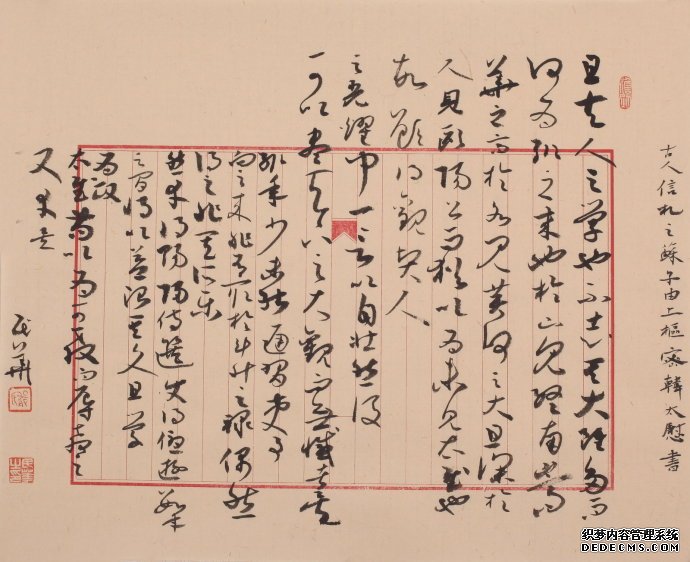 古人信札之蘇子由上樞密韓太慰書
且夫人之學也不志其大雖多而
何為轍之來也於山見終南嵩
華之高於水見黃河之大且深於
人見歐陽公而猶以為未見太尉也
故願得觀賢人
之光耀聞一言以自壯然後
可以盡天下之大觀而無憾者矣
轍年少未能通習吏事
向之來非有取於斗升之祿偶然
得之非其所樂
然幸得賜歸待選使得優遊數年
之間將以益治其文且學
為政
太尉苟以為可教而辱教之
又幸矣
织梦内容管理系统
DEDECMS.COM